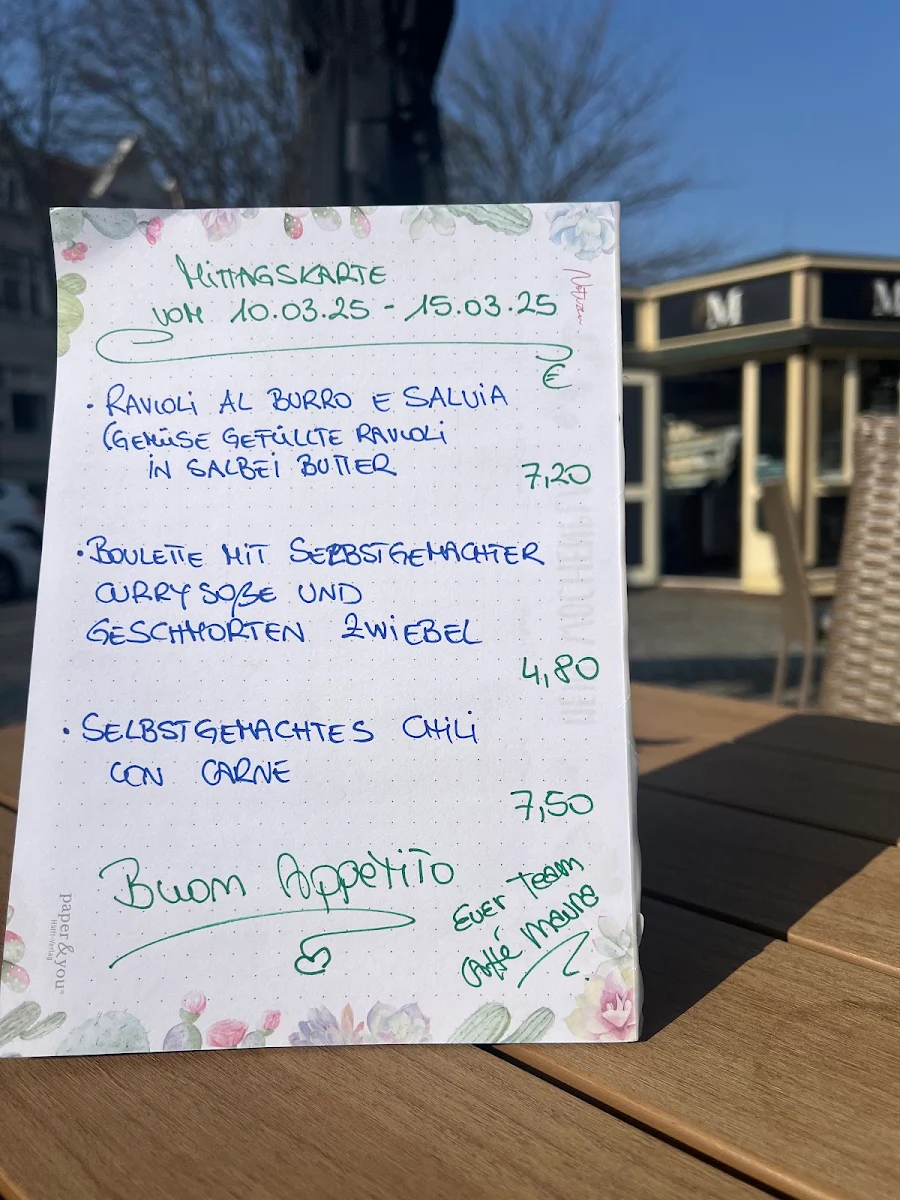 MITTAGSKARTE
VOM 10.03.25 - 15.03.25
Notizen
€
• RAVIOLI AL BURRO E SALVIA
(GEMÜSE GEFÜLLTE RAVIOLI
IN SALBEI BUTTER
7,20
• BOULETTE MIT SELBSTGEMACHTER
CURRYSOßE UND
GESCHMORTEN ZWIEBEL
4,80
• SELBSTGEMACHTES CHILI
CON CARNE
7,50
Buon Appetito
Euer Team
Caffé Mauro
paper&you
Häfft-Verlag
M
M